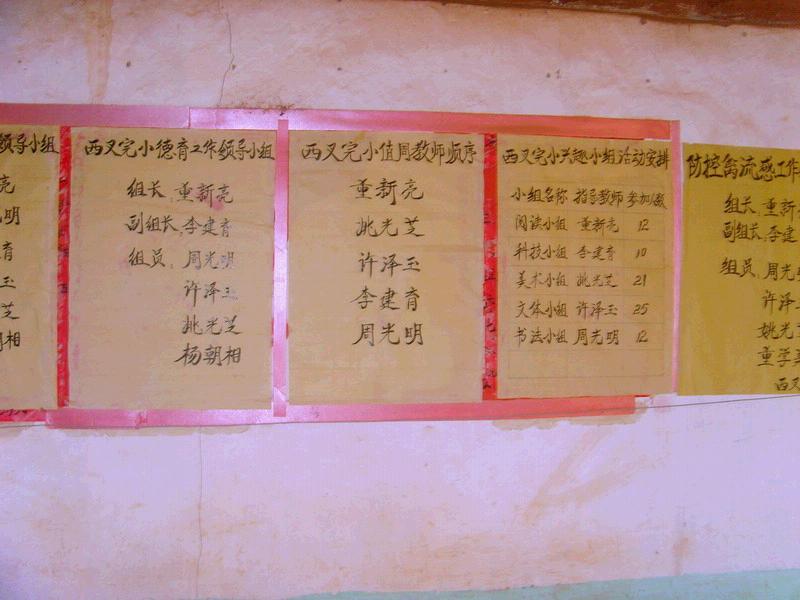 领导小组
亮
明
育
玉
芝
朝相
西叉完小德育工作领导小组
组长 董新亮
副组长 李建育
组员 周光明
许泽玉
姚光芝
杨朝相
西叉完小值周教师顺序
董新亮
姚光芝
许泽玉
李建育
周光明
西叉完小兴趣小组活动安排
小组名称 指导教师 参加人数
阅读小组 董新亮 12
科技小组 李建育 10
美术小组 姚光芝 21
文体小组 许泽玉 25
书法小组 周光明 12
防控禽流感工作
组长 董新
副组长 李建
组员 周光
许泽
姚光
董学
西叉